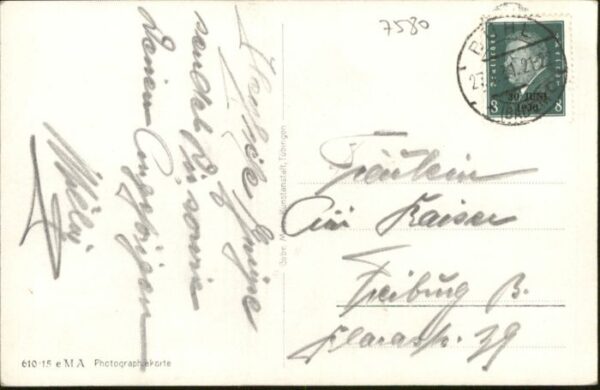 7580
BÜHL
Deutsches Reich
30. JUNI
1930
8 8
Herzliche Grüße
sendet Dir sowie
Deinen Angehörigen
Willi
Fräulein
Kaiser
Freiburg B.
Klarastr. 39
Gebr. Metz, Kunstanstalt, Tübingen
610-15 e M A Photographiekarte